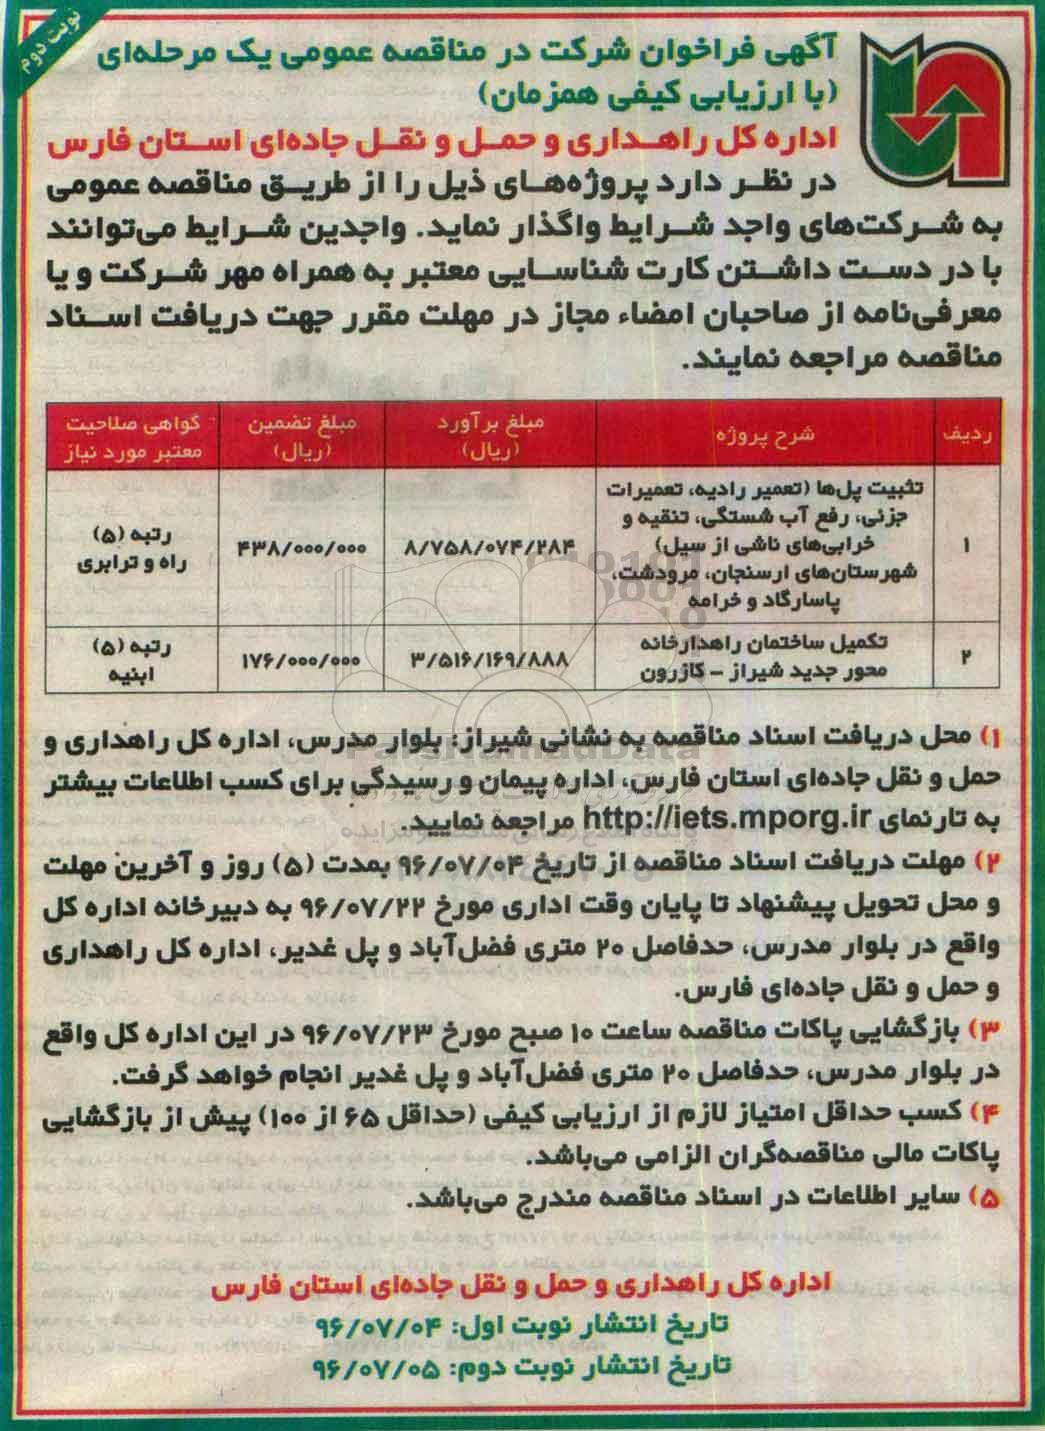 نوبت دوم
آگهی فراخوان شرکت در مناقصه عمومی یک مرحله‌ای
(با ارزیابی کیفی همزمان)
اداره کل راهداری و حمل و نقل جاده‌ای استان فارس
در نظر دارد پروژه‌های ذیل را از طریق مناقصه عمومی
به شرکت‌های واجد شرایط واگذار نماید. واجدین شرایط می‌توانند
با در دست داشتن کارت شناسایی معتبر به همراه مهر شرکت و یا
معرفی‌نامه از صاحبان امضاء مجاز در مهلت مقرر جهت دریافت اسناد
مناقصه مراجعه نمایند.
ردیف
شرح پروژه
مبلغ برآورد
(ریال)
مبلغ تضمین
(ریال)
گواهی صلاحیت
معتبر مورد نیاز
۱
تثبیت پل‌ها (تعمیر رادیه، تعمیرات
جزئی، رفع آب شستگی، تنقیه و
خرابی‌های ناشی از سیل)
شهرستان‌های ارسنجان، مرودشت،
پاسارگاد و خرامه
۸/۷۵۸/۰۷۴/۲۸۴
۴۳۸/۰۰۰/۰۰۰
رتبه (۵)
راه و ترابری
۲
تکمیل ساختمان راهدارخانه
محور جدید شیراز - کازرون
۳/۵۱۶/۱۶۹/۸۸۸
۱۷۶/۰۰۰/۰۰۰
رتبه (۵)
ابنیه
۱) محل دریافت اسناد مناقصه به نشانی شیراز: بلوار مدرس، اداره کل راهداری و
حمل و نقل جاده‌ای استان فارس، اداره پیمان و رسیدگی برای کسب اطلاعات بیشتر
به تارنمای http://iets.mporg.ir مراجعه نمایید.
۲) مهلت دریافت اسناد مناقصه از تاریخ ۹۶/۰۷/۰۴ بمدت (۵) روز و آخرین مهلت
و محل تحویل پیشنهاد تا پایان وقت اداری مورخ ۹۶/۰۷/۲۲ به دبیرخانه اداره کل
واقع در بلوار مدرس، حدفاصل ۲۰ متری فضل‌آباد و پل غدیر، اداره کل راهداری
و حمل و نقل جاده‌ای فارس.
۳) بازگشایی پاکات مناقصه ساعت ۱۰ صبح مورخ ۹۶/۰۷/۲۳ در این اداره کل واقع
در بلوار مدرس، حدفاصل ۲۰ متری فضل‌آباد و پل غدیر انجام خواهد گرفت.
۴) کسب حداقل امتیاز لازم از ارزیابی کیفی (حداقل ۶۵ از ۱۰۰) پیش از بازگشایی
پاکات مالی مناقصه‌گران الزامی می‌باشد.
۵) سایر اطلاعات در اسناد مناقصه مندرج می‌باشد.
اداره کل راهداری و حمل و نقل جاده‌ای استان فارس
تاریخ انتشار نوبت اول: ۹۶/۰۷/۰۴
تاریخ انتشار نوبت دوم: ۹۶/۰۷/۰۵